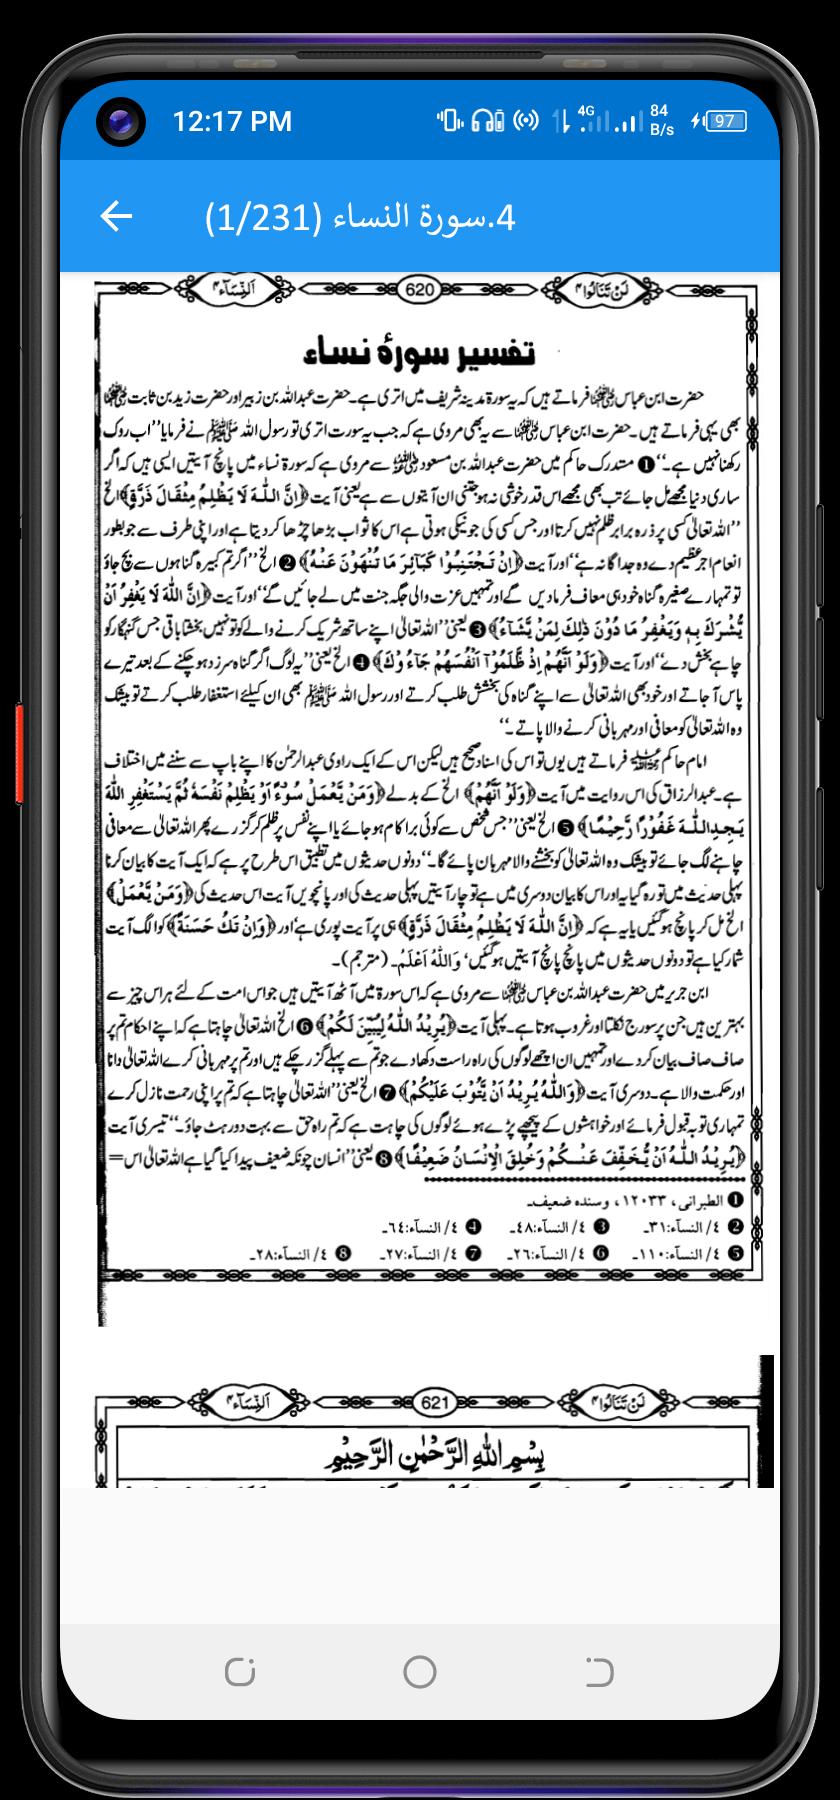 12:17 PM
4G
84
B/s
97
4.سورة النساء (1/231)
لَنْ تَنَالُوا ۴
620
اَلنِّسَآء ۴
تفسیر سورۂ نساء
حضرت ابن عباس رضی اللہ عنہما فرماتے ہیں کہ یہ سورۃ مدینہ شریف میں اتری ہے۔ حضرت عبداللہ بن زبیر اور حضرت زید بن ثابت رضی اللہ عنہم
بھی یہی فرماتے ہیں۔ حضرت ابن عباس رضی اللہ عنہما سے یہ بھی مروی ہے کہ جب یہ سورت اتری تو رسول اللہ ﷺ نے فرمایا ’’اب روک
رکھنا نہیں ہے۔‘‘ ❶ مستدرک حاکم میں حضرت عبداللہ بن مسعود رضی اللہ عنہ سے مروی ہے کہ سورۃ نساء میں پانچ آیتیں ایسی ہیں کہ اگر
ساری دنیا مجھے مل جائے تب بھی مجھے اس قدر خوشی نہ ہو جتنی ان آیتوں سے ہے یعنی آیت ﴿اِنَّ اللّٰهَ لَا يَظْلِمُ مِثْقَالَ ذَرَّةٍ﴾ الخ
’’اللہ تعالیٰ کسی پر ذرہ برابر ظلم نہیں کرتا اور جس کسی کی جو نیکی ہوتی ہے اس کا ثواب بڑھا چڑھا کر دیتا ہے اور اپنی طرف سے جو بطور
انعام اجر عظیم دے وہ جداگانہ ہے‘‘ اور آیت ﴿اِنْ تَجْتَنِبُوْا كَبَآئِرَ مَا تُنْهَوْنَ عَنْهُ﴾ ❷ الخ ’’اگر تم کبیرہ گناہوں سے بچ جاؤ
تو تمہارے صغیرہ گناہ خود ہی معاف فرما دیں گے اور تمہیں عزت والی جگہ جنت میں لے جائیں گے‘‘ اور آیت ﴿اِنَّ اللّٰهَ لَا يَغْفِرُ اَنْ
يُّشْرَكَ بِهٖ وَيَغْفِرُ مَا دُوْنَ ذٰلِكَ لِمَنْ يَّشَآءُ﴾ ❸ یعنی ’’اللہ تعالیٰ اپنے ساتھ شریک کرنے والے کو تو نہیں بخشتا باقی جس گنہگار کو
چاہے بخش دے‘‘ اور آیت ﴿وَلَوْ اَنَّهُمْ اِذْ ظَّلَمُوْٓا اَنْفُسَهُمْ جَآءُوْكَ﴾ ❹ الخ یعنی ’’یہ لوگ اگر گناہ سرزد ہو چکنے کے بعد تیرے
پاس آ جاتے اور خود بھی اللہ تعالیٰ سے اپنے گناہ کی بخشش طلب کرتے اور رسول اللہ ﷺ بھی ان کیلئے استغفار طلب کرتے تو بیشک
وہ اللہ تعالیٰ کو معافی اور مہربانی کرنے والا پاتے۔‘‘
امام حاکم رحمہ اللہ فرماتے ہیں یوں تو اس کی اسناد صحیح ہیں لیکن اس کے ایک راوی عبدالرحمٰن کا اپنے باپ سے سننے میں اختلاف
ہے۔ عبدالرزاق کی اس روایت میں آیت ﴿وَلَوْ اَنَّهُمْ﴾ الخ کے بدلے ﴿وَمَنْ يَّعْمَلْ سُوْٓءً اَوْ يَظْلِمْ نَفْسَهٗ ثُمَّ يَسْتَغْفِرِ اللّٰهَ
يَجِدِ اللّٰهَ غَفُوْرًا رَّحِيْمًا﴾ ❺ الخ یعنی ’’جس شخص سے کوئی برا کام ہو جائے یا اپنے نفس پر ظلم کر گزرے پھر اللہ تعالیٰ سے معافی
چاہنے لگ جائے تو بیشک وہ اللہ تعالیٰ کو بخشنے والا مہربان پائے گا۔‘‘ دونوں حدیثوں میں تطبیق اس طرح پر ہے کہ ایک آیت کا بیان کرنا
پہلی حدیث میں تو رہ گیا یہ اور اس کا بیان دوسری میں ہے تو چار آیتیں پہلی حدیث کی اور پانچویں آیت اس حدیث کی ﴿وَمَنْ يَّعْمَلْ﴾
الخ مل کر پانچ ہو گئیں یا یہ ہے کہ ﴿اِنَّ اللّٰهَ لَا يَظْلِمُ مِثْقَالَ ذَرَّةٍ﴾ ہی پر آیت پوری ہے اور ﴿وَاِنْ تَكُ حَسَنَةً﴾ کو الگ آیت
شمار کیا ہے تو دونوں حدیثوں میں پانچ پانچ آیتیں ہو گئیں‘ وَاللّٰهُ اَعْلَمُ۔ (مترجم)۔
ابن جریر میں حضرت عبداللہ بن عباس رضی اللہ عنہما سے مروی ہے کہ اس سورۃ میں آٹھ آیتیں ہیں جو اس امت کے لئے ہر اس چیز سے
بہترین ہیں جن پر سورج نکلتا اور غروب ہوتا ہے۔ پہلی آیت ﴿يُرِيْدُ اللّٰهُ لِيُبَيِّنَ لَكُمْ﴾ ❻ الخ اللہ تعالیٰ چاہتا ہے کہ اپنے احکام تم پر
صاف صاف بیان کر دے اور تمہیں ان اچھے لوگوں کی راہ راست دکھا دے جو تم سے پہلے گزر چکے ہیں اور تم پر مہربانی کرے اللہ تعالیٰ دانا
اور حکمت والا ہے۔ دوسری آیت ﴿وَاللّٰهُ يُرِيْدُ اَنْ يَّتُوْبَ عَلَيْكُمْ﴾ ❼ الخ یعنی ’’اللہ تعالیٰ چاہتا ہے کہ تم پر اپنی رحمت نازل کرے
تمہاری توبہ قبول فرمائے اور خواہشوں کے پیچھے پڑے ہوئے لوگوں کی چاہت ہے کہ تم راہ حق سے بہت دور ہٹ جاؤ۔‘‘ تیسری آیت
﴿يُرِيْدُ اللّٰهُ اَنْ يُّخَفِّفَ عَنْكُمْ وَخُلِقَ الْاِنْسَانُ ضَعِيْفًا﴾ ❽ یعنی ’’انسان چونکہ ضعیف پیدا کیا گیا ہے اللہ تعالیٰ اس =
❶ الطبرانی، ١٢٠٣٣، وسنده ضعيف۔
❷ ٤/ النسآء:٣١۔ ❸ ٤/ النسآء:٤٨۔ ❹ ٤/ النسآء:٦٤۔
❺ ٤/ النسآء:١١٠۔ ❻ ٤/ النسآء:٢٦۔ ❼ ٤/ النسآء:٢٧۔ ❽ ٤/ النسآء:٢٨۔
لَنْ تَنَالُوا ۴
621
اَلنِّسَآء ۴
بِسْمِ اللّٰهِ الرَّحْمٰنِ الرَّحِيْمِ